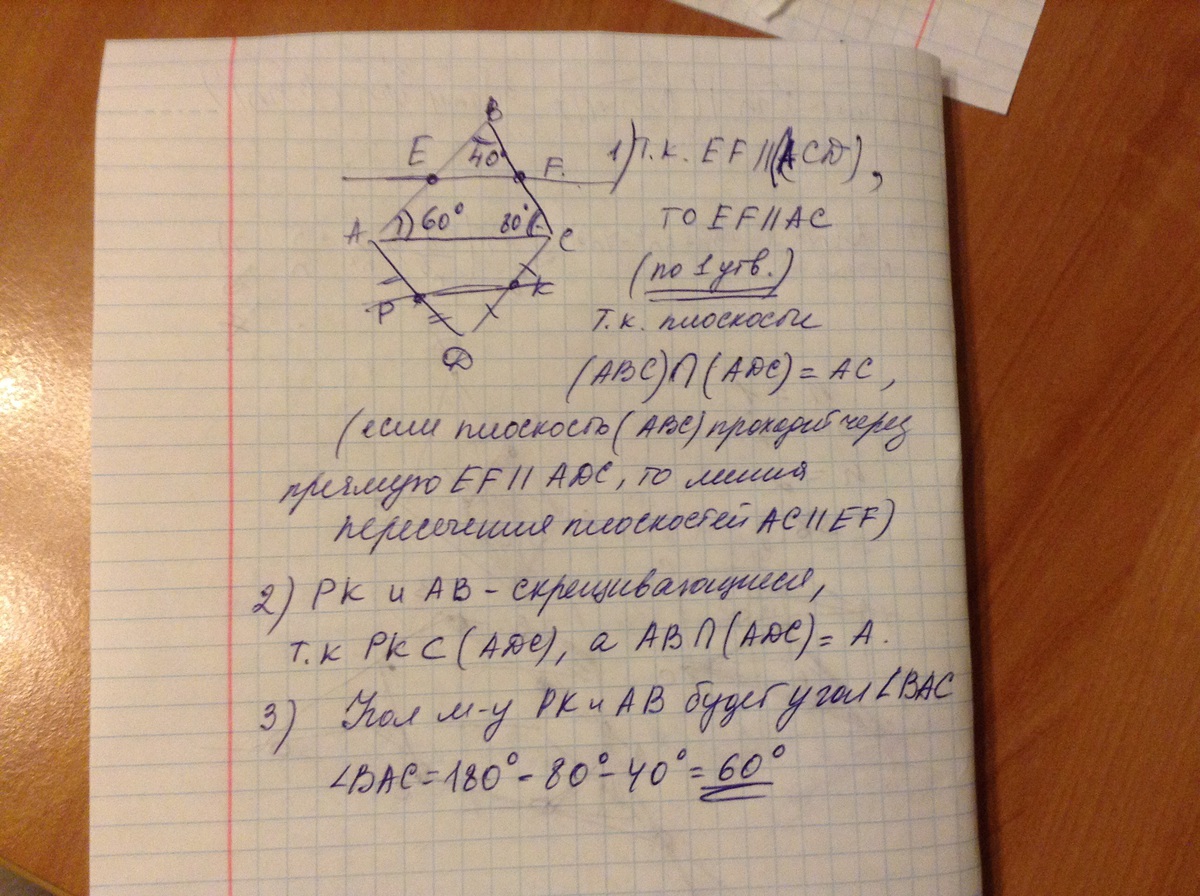 B
E
40°
F.
A
1) 60°
80°
C
P
K
D
1) Т.к. EF || (ACD),
то EF || AC
(по 1 утв.)
Т.к. плоскости
(ABC) ∩ (ADC) = AC,
(если плоскость (ABC) проходит через
прямую EF || ADC, то линия
пересечения плоскостей AC || EF)
2) PK и AB - скрещивающиеся,
т.к PK ⊂ (ADC), а AB ∩ (ADC) = A.
3) Угол м-у PK и AB будет угол ∠BAC
∠BAC = 180° - 80° - 40° = 60°